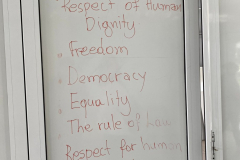 Respect of Human
Dignity
• Freedom
• Democracy
• Equality
• The rule of Law
Respect for human